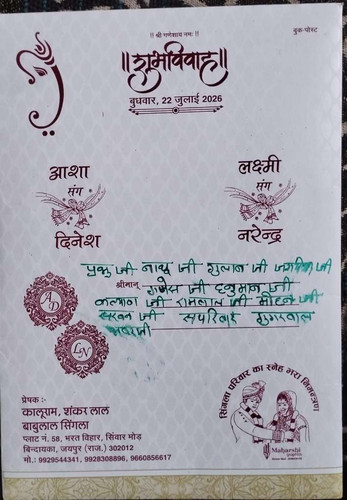 || श्री गणेशाय नमः ||
बुक-पोस्ट
॥शुभविवाह॥
बुधवार, 22 जुलाई 2026
आशा
संग
दिनेश
लक्ष्मी
संग
नरेन्द्र
प्रभु जी नाथु जी गुलाब जी जगदीश जी
श्रीमान् गणेस जी हनुमान जी
कल्याण जी रामलाल जी मोहन जी
सरवन जी सपरिवार
AD
LN
सिंगला परिवार का स्नेह भरा निमन्त्रण
प्रेषक :-
कालूराम, शंकर लाल
बाबुलाल सिंगला
प्लाट नं. 58, भरत विहार, सिंवार मोड़
बिन्दायका, जयपुर (राज.) 302012
मो.: 9929544341, 9928308896, 9660856617
Maharshi